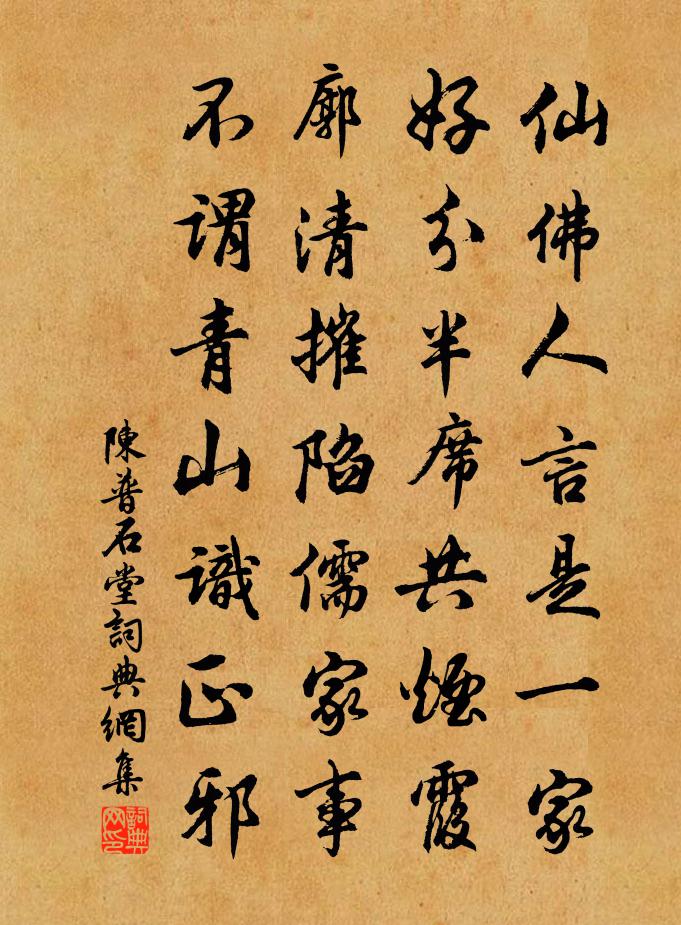 仙佛人言是一家
好分半席共煙霞
廓清摧陷儒家事
不謂青山識正邪
陳普石堂詞典網集
詞典網印